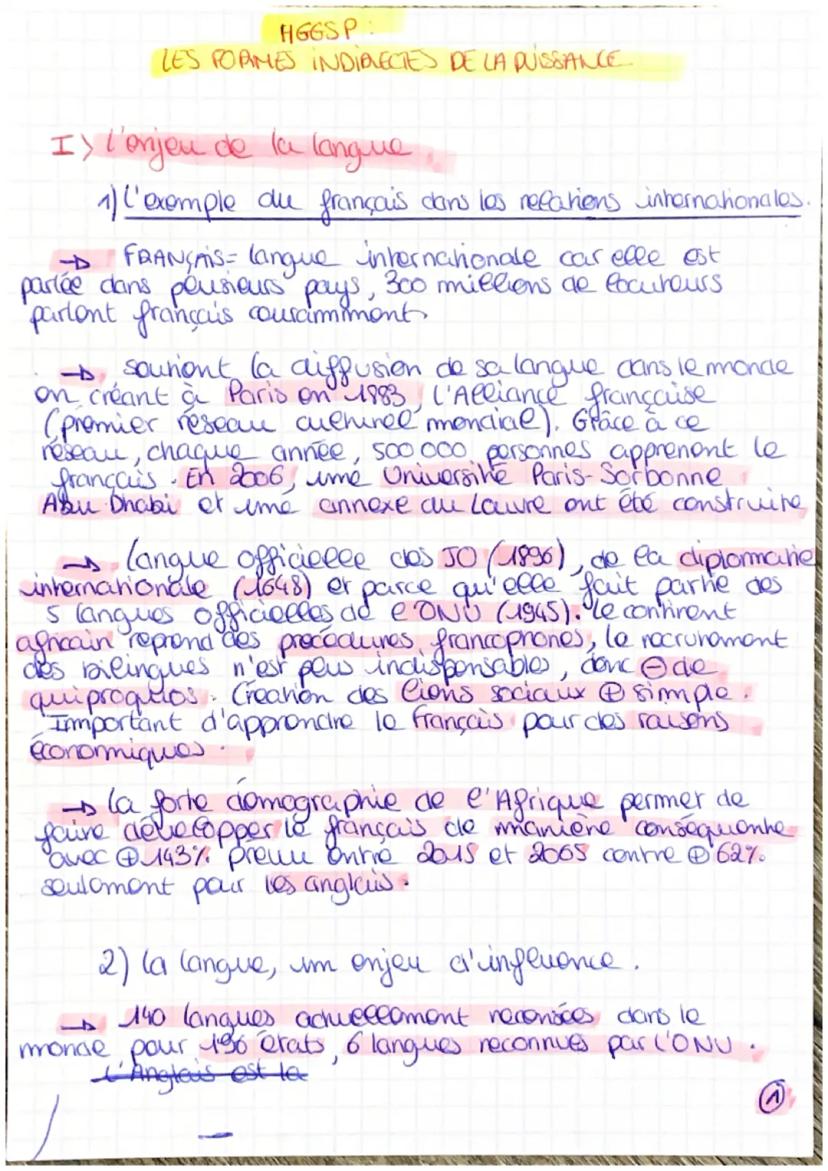 HGGSP :
LES FORMES INDIRECTES DE LA PUISSANCE
I> L'enjeu de la langue
1) L'exemple du français dans les relations internationales.
→ FRANÇAIS = langue internationale car elle est
parlée dans plusieurs pays, 300 millions de locuteurs
parlent français couramment
→ soutient la diffusion de sa langue dans le monde
en créant à Paris en 1883, l'Alliance française
(premier réseau culturel mondial). Grâce à ce
réseau, chaque année, 500 000 personnes apprenent le
français. En 2006, une Université Paris-Sorbonne
Abu Dhabi et une annexe du Louvre ont été construite
→ Langue officielle des JO (1896), de la diplommatie
internationale (1648) et parce qu'elle fait partie des
5 langues officielles de l'ONU (1945). Le continent
africain reprend des procédures francophones, le recrutement
des bilingues n'est plus indispensables, donc ⊖ de
quiproquos. Création des liens sociaux ⊕ simple.
Important d'apprendre le français pour des raisons
économiques.
→ La forte démographie de l'Afrique permet de
faire développer le français de manière conséquente
avec ⊕ 143% prévu entre 2015 et 2065 contre ⊕ 62%
seulement pour les anglais.
2) La langue, un enjeu d'influence.
→ 140 langues actuellement recensées dans le
monde pour 196 états, 6 langues reconnues par l'ONU.
L'Anglais est la
1